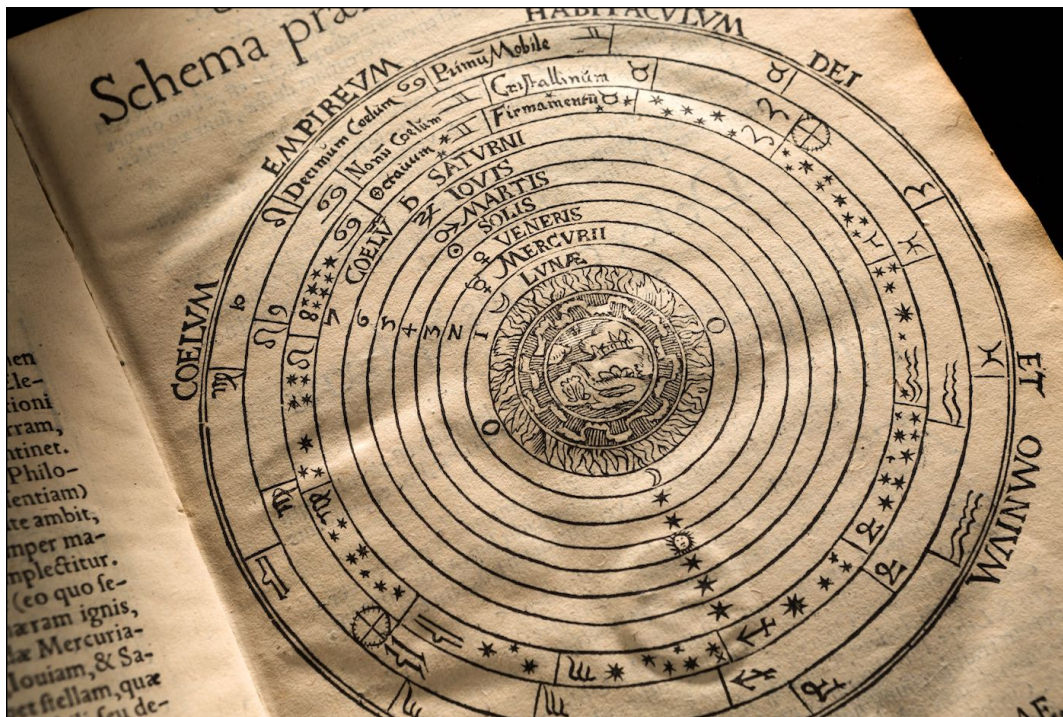 Schema
COELVM EMPIREVM HABITACVLVM DEI ET OMNIVM
Decimum Coelum Primũ Mobile
Nonũ Coelum Cristallinum
Octauum Firmamentũ
COELṼ SATVRNI
IOVIS
MARTIS
SOLIS
VENERIS
MERCVRII
LVNÆ
10
9
8
7
6
5
4
3
2
1
Ele-
tioni
rram,
ntinet.
Philo-
sentiam)
te ambit,
mper ma-
mplectitur.
(eo quo se-
æram ignis,
dæ Mercuria-
Iouiam, & Sa-
pet stellam, quæ